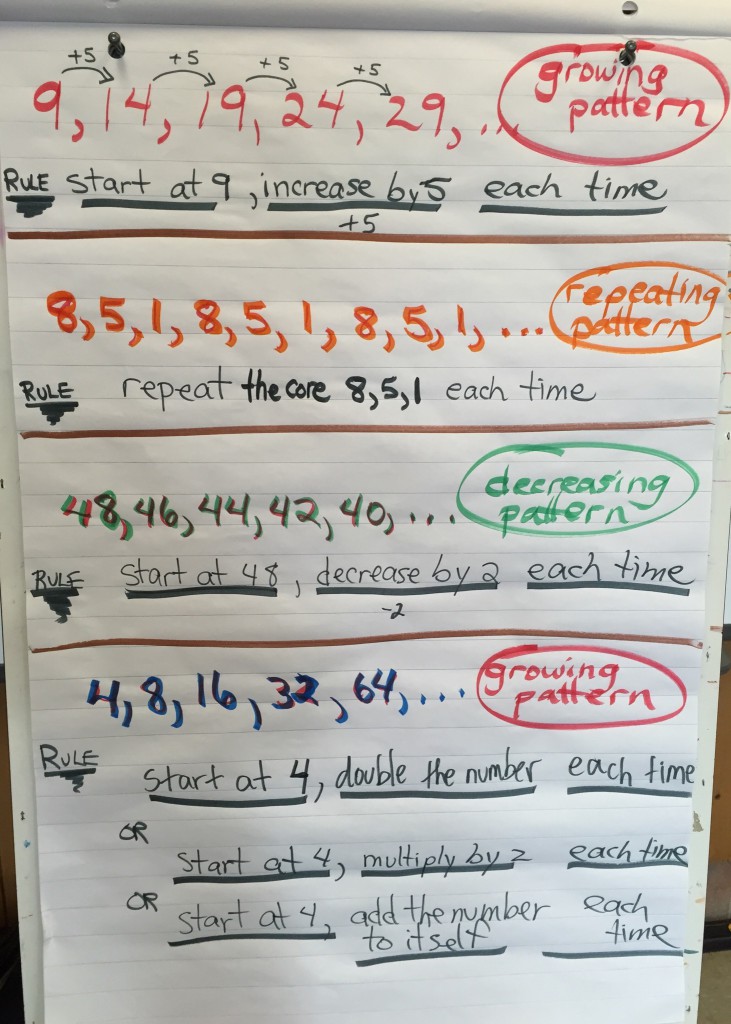 +5 +5 +5 +5
9, 14, 19, 24, 29, ... growing pattern
RULE start at 9, increase by 5 each time
+5
8, 5, 1, 8, 5, 1, 8, 5, 1, ... repeating pattern
RULE repeat the core 8, 5, 1 each time
48, 46, 44, 42, 40, ... decreasing pattern
RULE start at 48, decrease by 2 each time
-2
4, 8, 16, 32, 64, ... growing pattern
RULE
start at 4, double the number each time
OR
start at 4, multiply by 2 each time
OR start at 4, add the number to itself each time